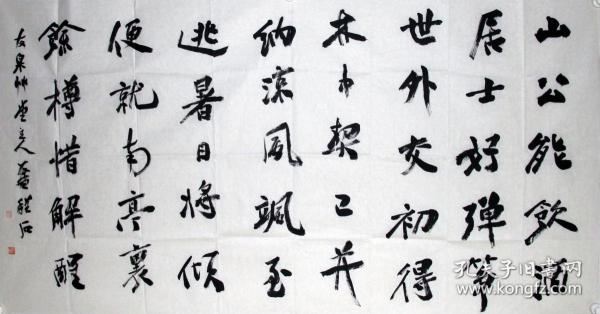 山公能飲酒
居士好彈箏
世外交初得
林中契已并
納涼風颯至
逃暑日將傾
便就南亭裏
餘樽惜解酲
泉竹堂主人
孔夫子旧书网
www.kongfz.com